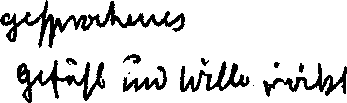 gesprochenes
Gefühl und Wille nicht